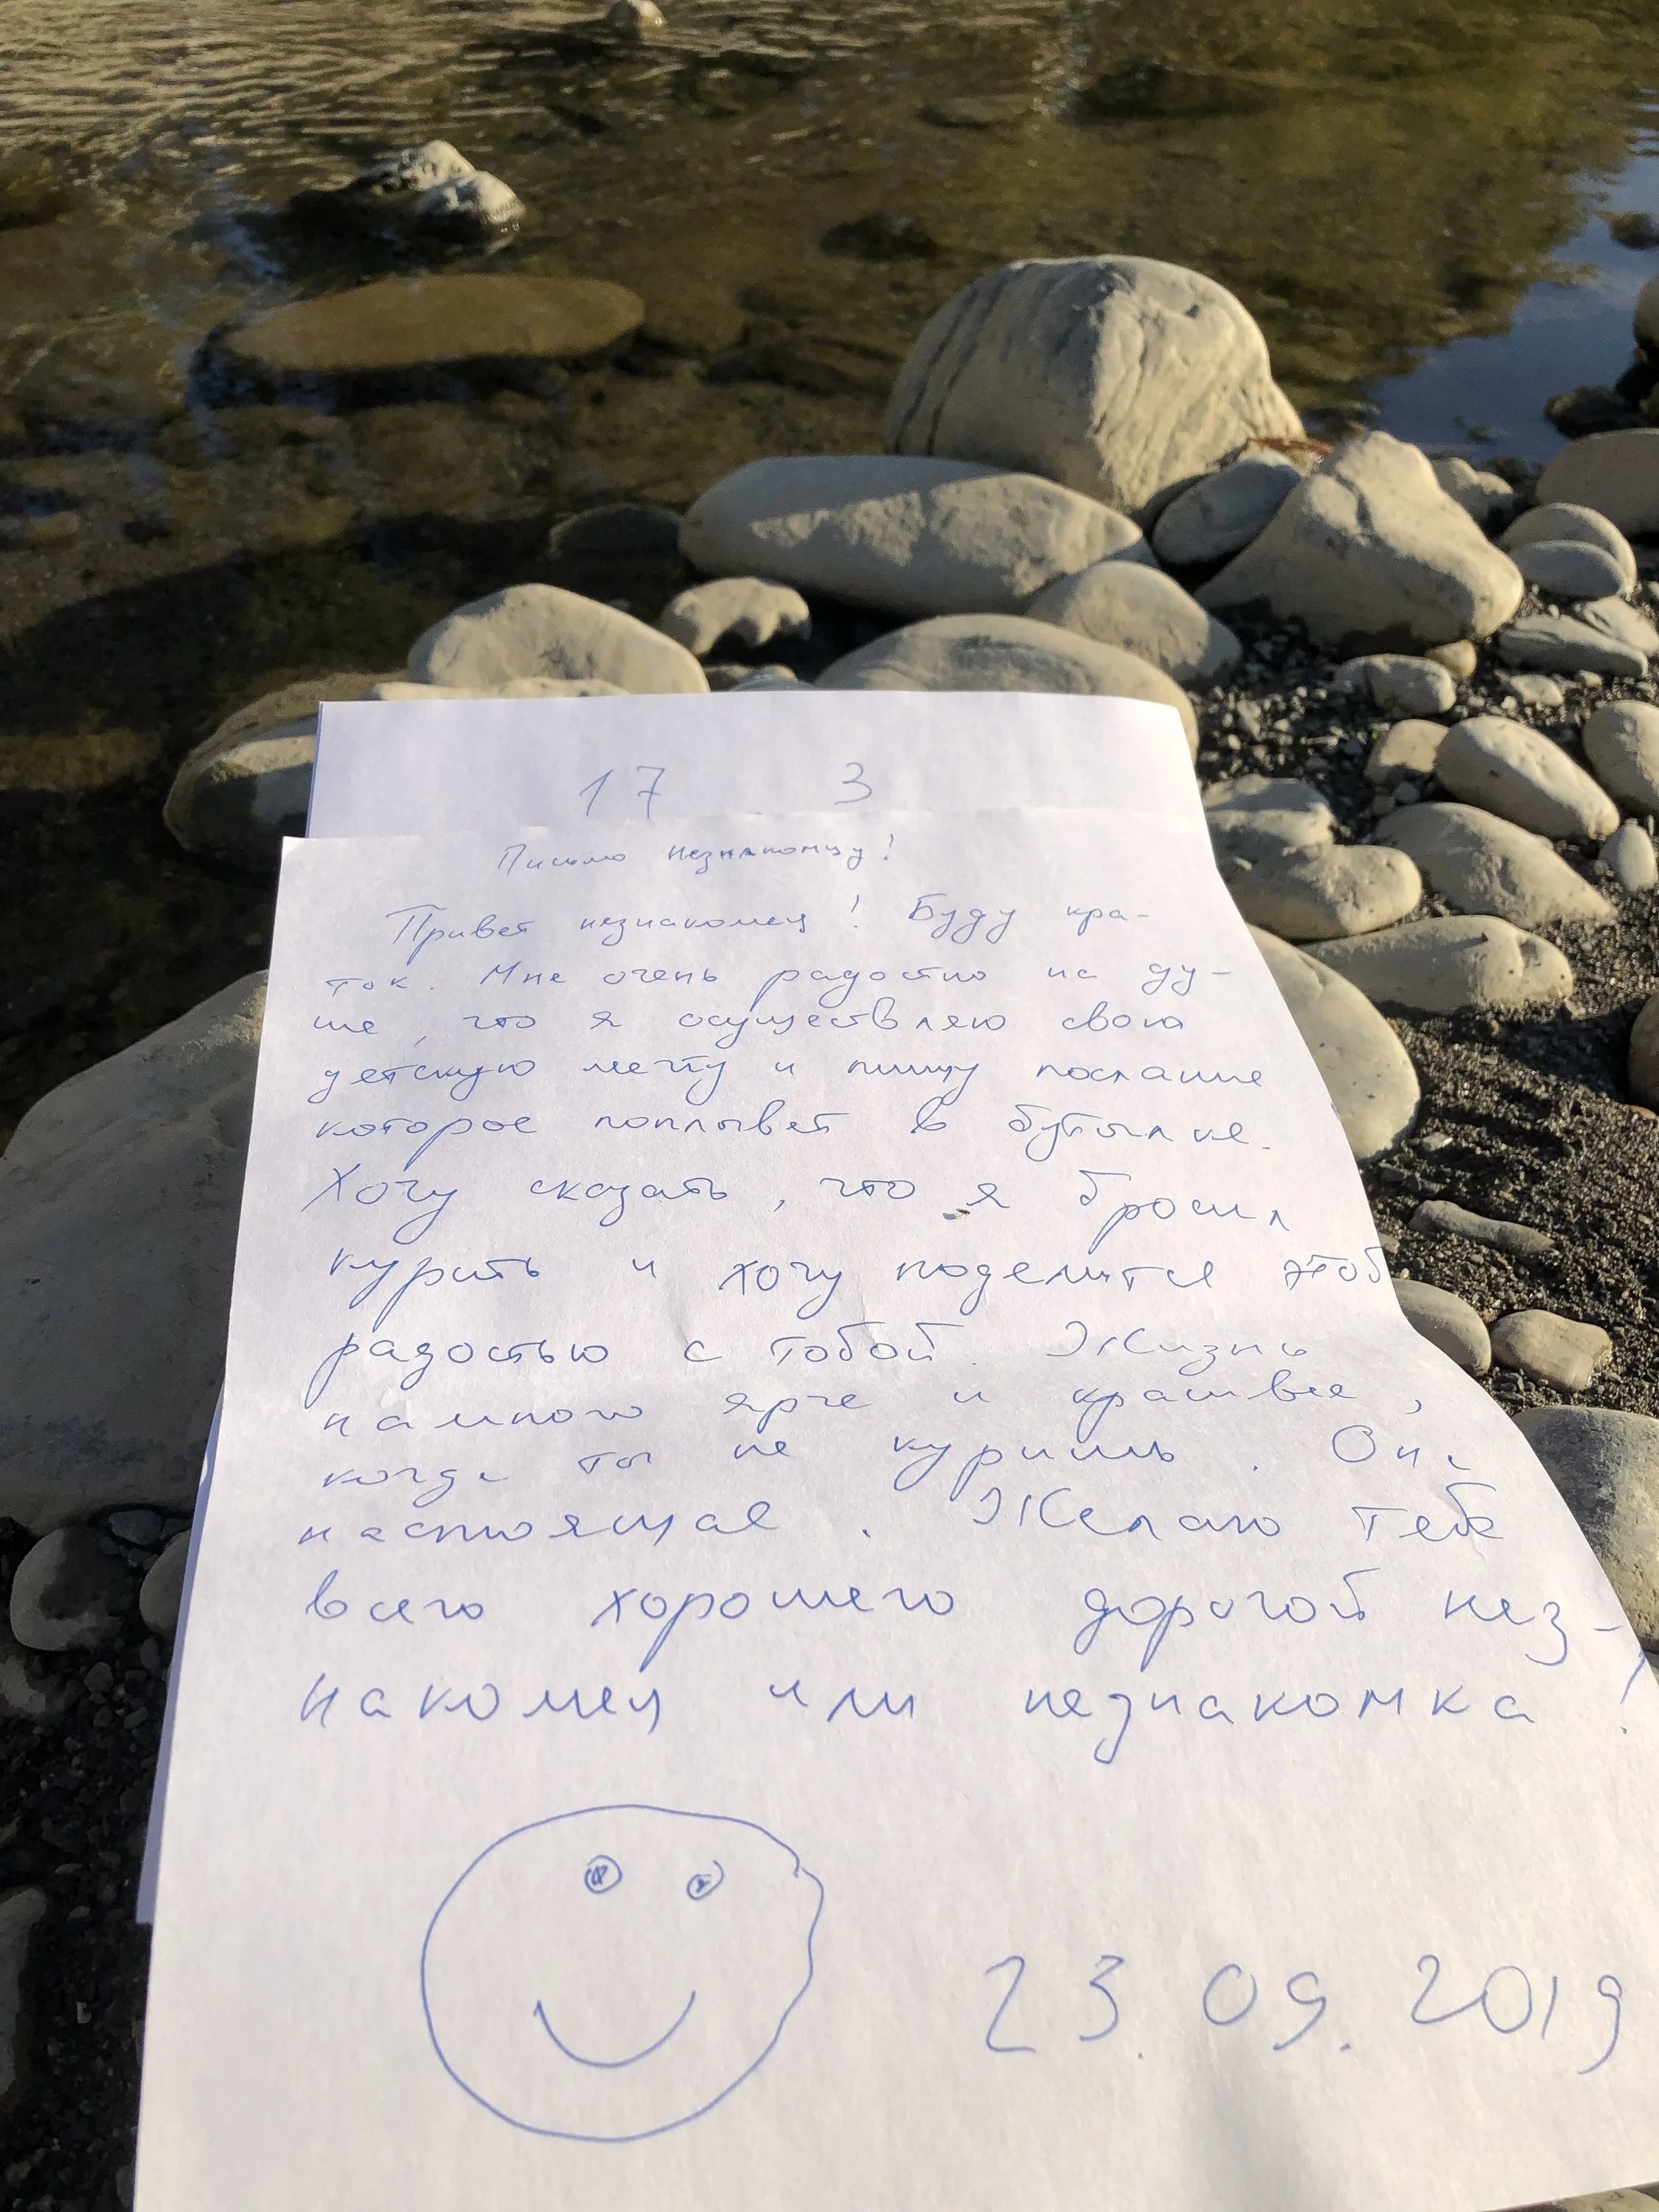 17 3
Письмо незнакомцу!
Привет незнакомец! Буду кра-
ток. Мне очень радостно на ду-
ше, что я осуществляю свою
детскую мечту и пишу послание
которое поплывет в бутылке.
Хочу сказать, что я бросил
курить и хочу поделится этой
радостью с тобой. Жизнь
намного ярче и красивее,
когда ты не куришь. Она
настоящая. Желаю тебе
всего хорошего дорогой нез-
накомец или незнакомка!
23.09.2019